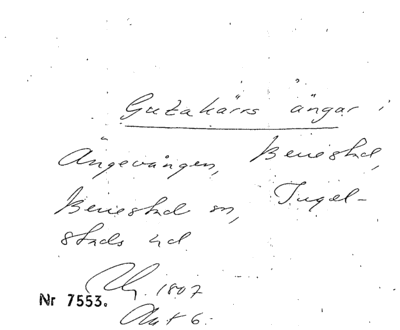 Gutakärrs ängar i
Ängavången, Benestad,
Benestad sn, Ingel-
stads hd
1807
Nr 7553.
Akt 6.